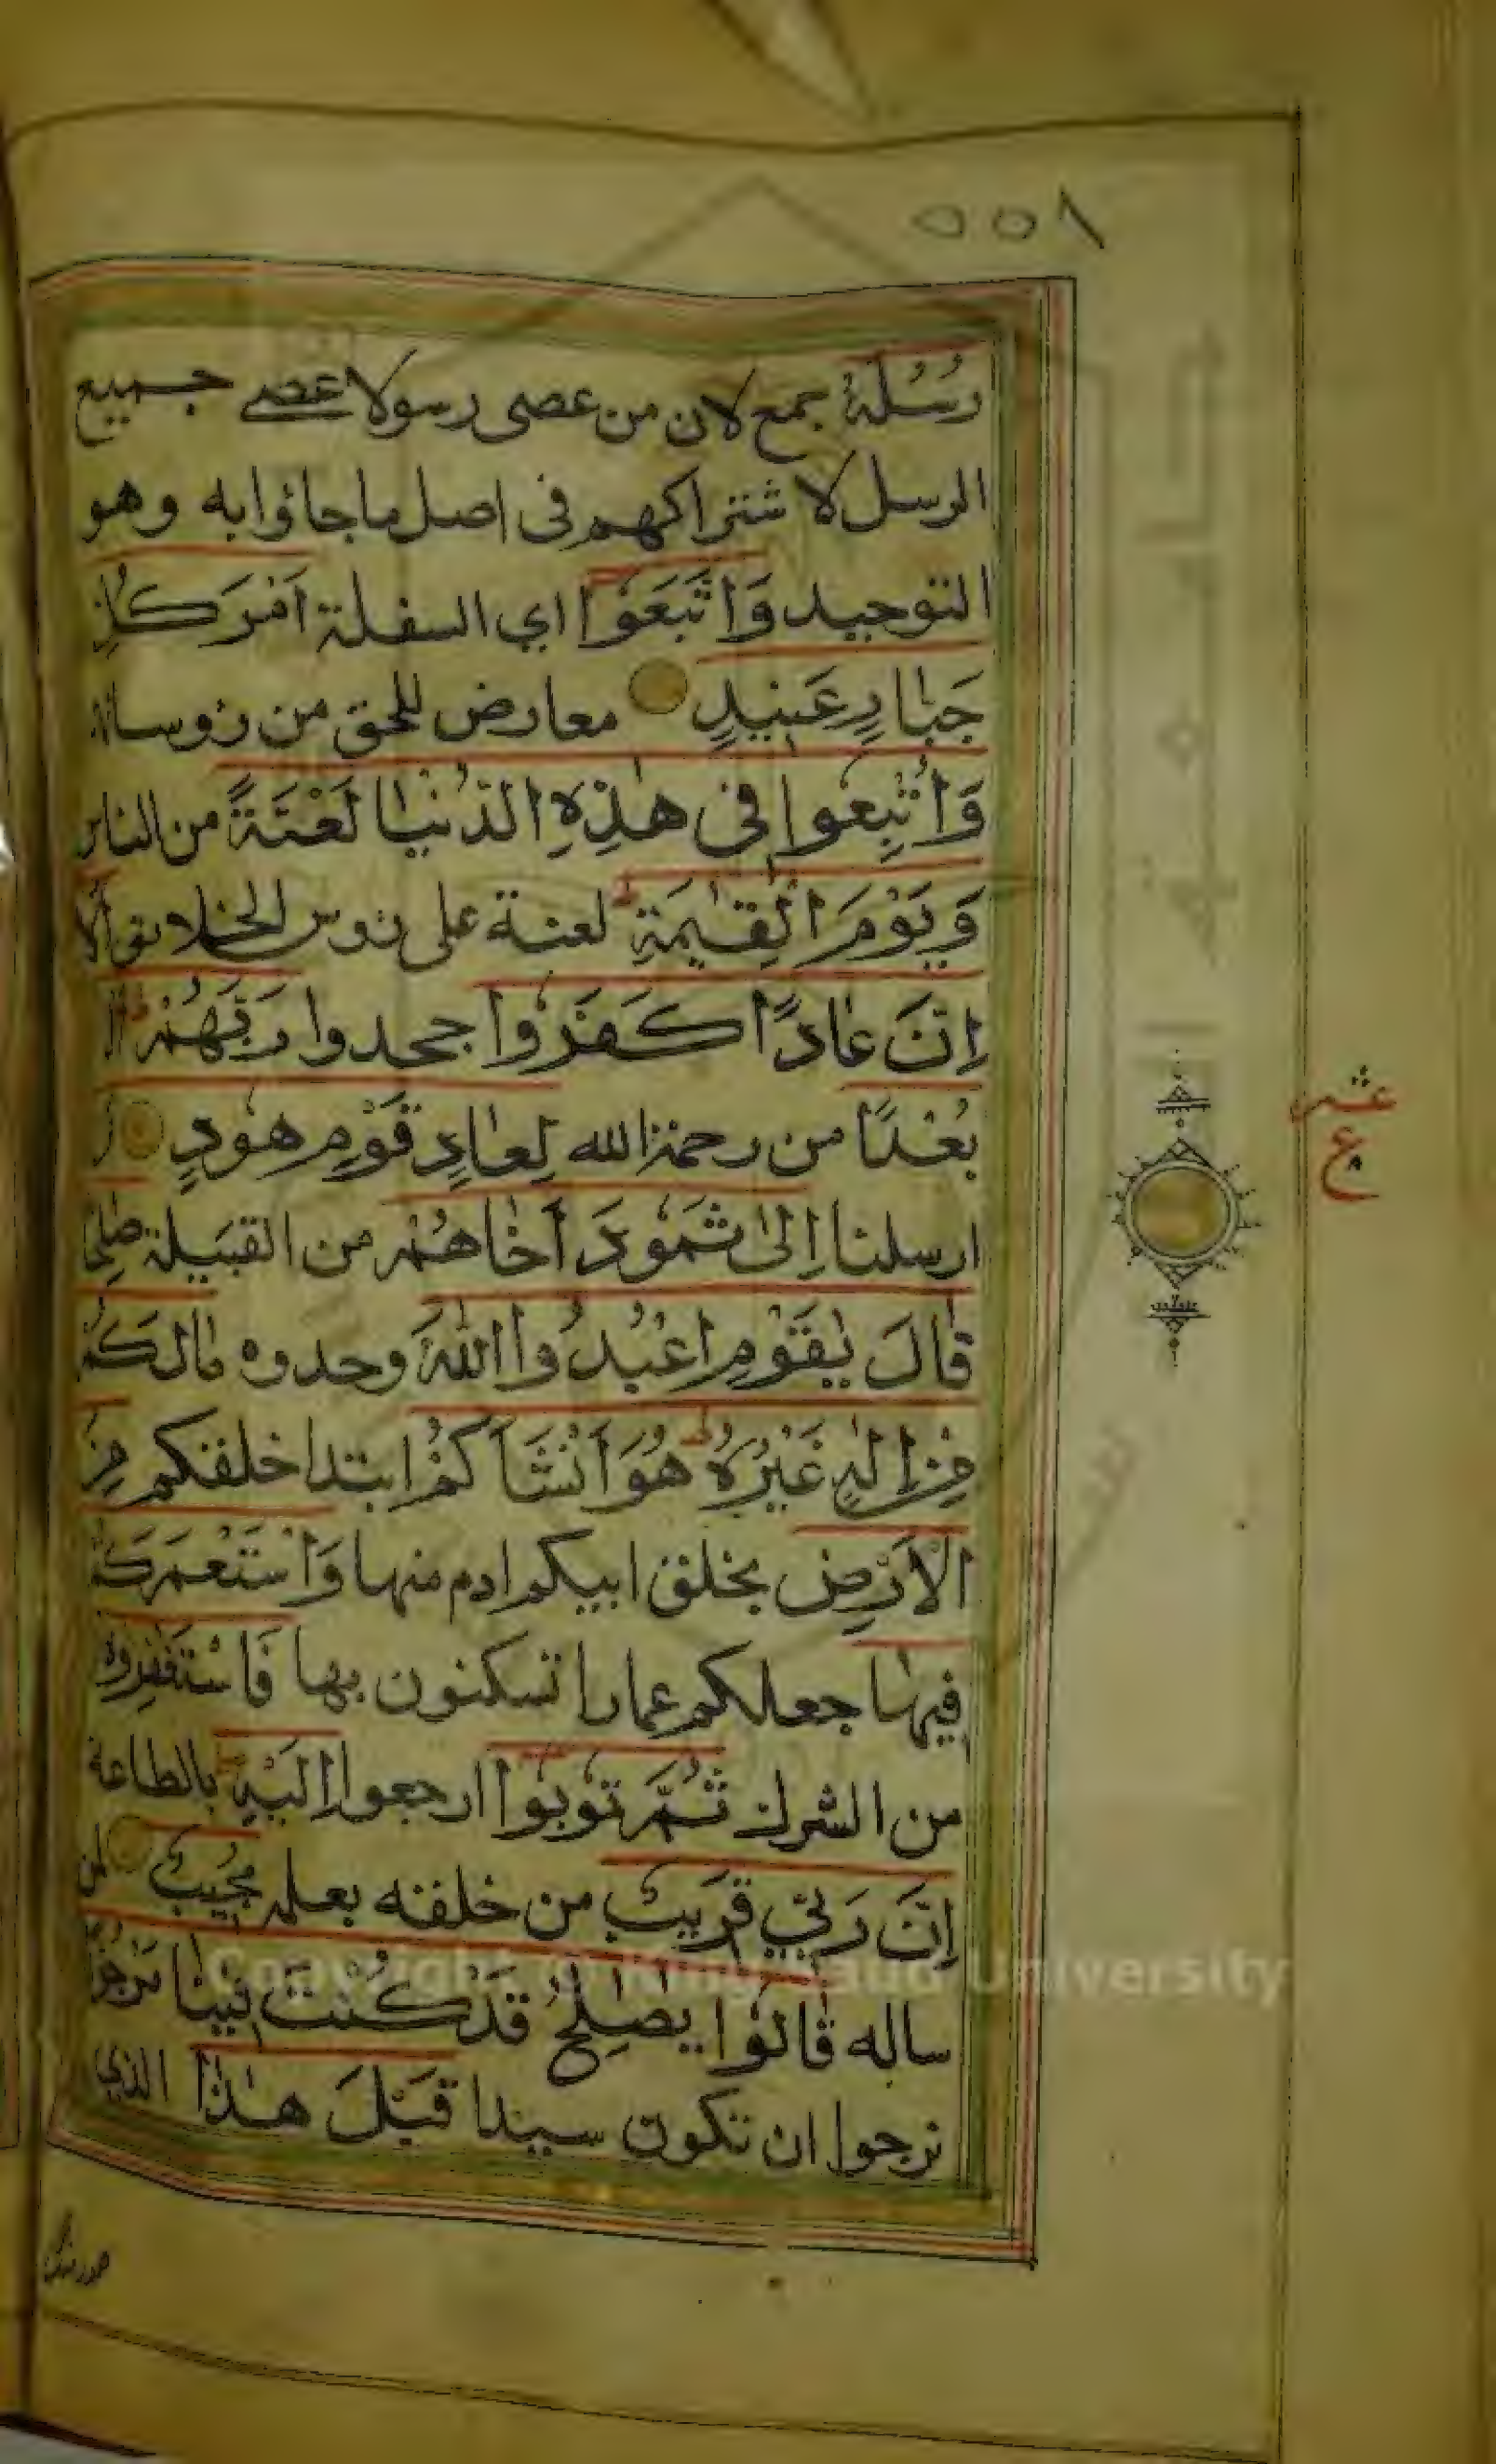 ٥٥٨
رُسُلَهُ جمع لان من عصى رسولا عصى جميع
الرسل لاشتراكهم فى اصل ماجاؤا به وهو
التوحيد وَاتَّبَعُوٓا اي السفلة اَمْرَ كُلِّ
جَبَّارٍ عَنِيدٍ معارض للحق من رؤسائهم
وَاُتْبِعُوا فِى هٰذِهِ الدُّنْيَا لَعْنَةً من الناس
وَيَوْمَ الْقِيٰمَةِ ط لعنة على رؤس الخلائق اَلَا
اِنَّ عَادًا كَفَرُوا جحدوا رَبَّهُمْ ط اَلَا
بُعْدًا من رحمة الله لِعَادٍ قَوْمِ هُودٍ و
عشر
ع
ارسلنا اِلٰى ثَمُودَ اَخَاهُمْ من القبيلة صٰلِحًا
قَالَ يٰقَوْمِ اعْبُدُوا اللّٰهَ وحدوه مَالَكُمْ
مِنْ اِلٰهٍ غَيْرُهُ ط هُوَ اَنْشَاَكُمْ ابتدا خلقكم مِنَ
الْاَرْضِ بخلق ابيكم ادم منها وَاسْتَعْمَرَكُمْ
فِيهَا جعلكم عمارا تسكنون بها فَاسْتَغْفِرُوهُ
من الشرك ثُمَّ تُوبُوٓا ارجعوا اِلَيْهِ ط بالطاعة
اِنَّ رَبِّي قَرِيبٌ من خلقه بعلمه مُجِيبٌ لمن
ساله قَالُوا يٰصٰلِحُ قَدْ كُنْتَ فِينَا مَرْجُوًّا
نرجوا ان تكون سيدا قَبْلَ هٰذَا الذي
Copyright © King Saud University